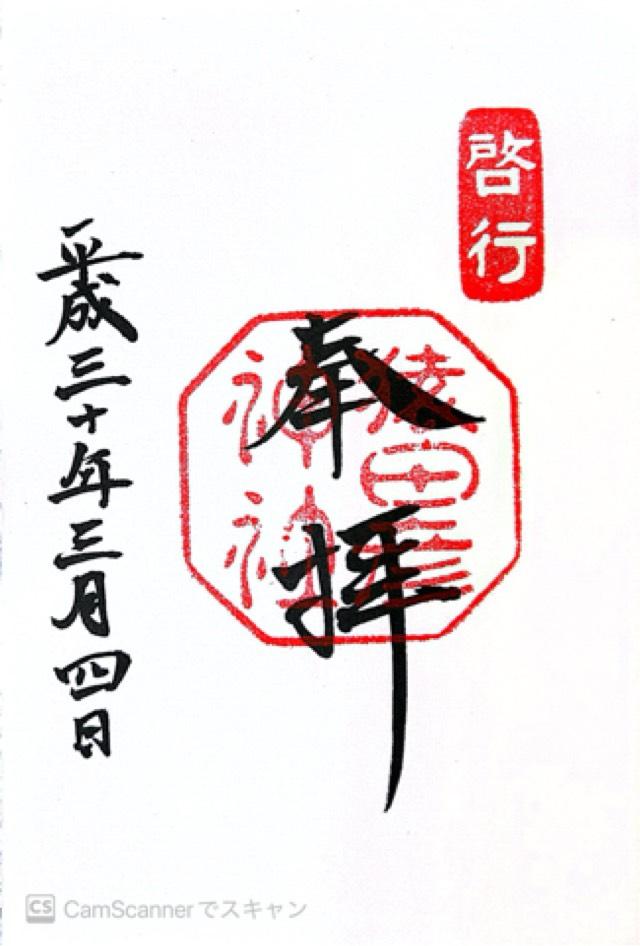 啓行
奉拝
猿田彦
神社
平成三十年三月四日
CS CamScannerでスキャン